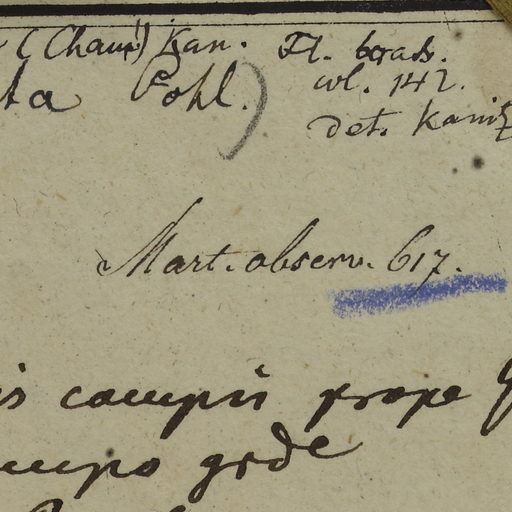 (Cham.) Kan. Fl. bras.
ta Pohl.) vol. 142.
det. Kanitz
Mart. observ. 617.
is campis prope
campo grde